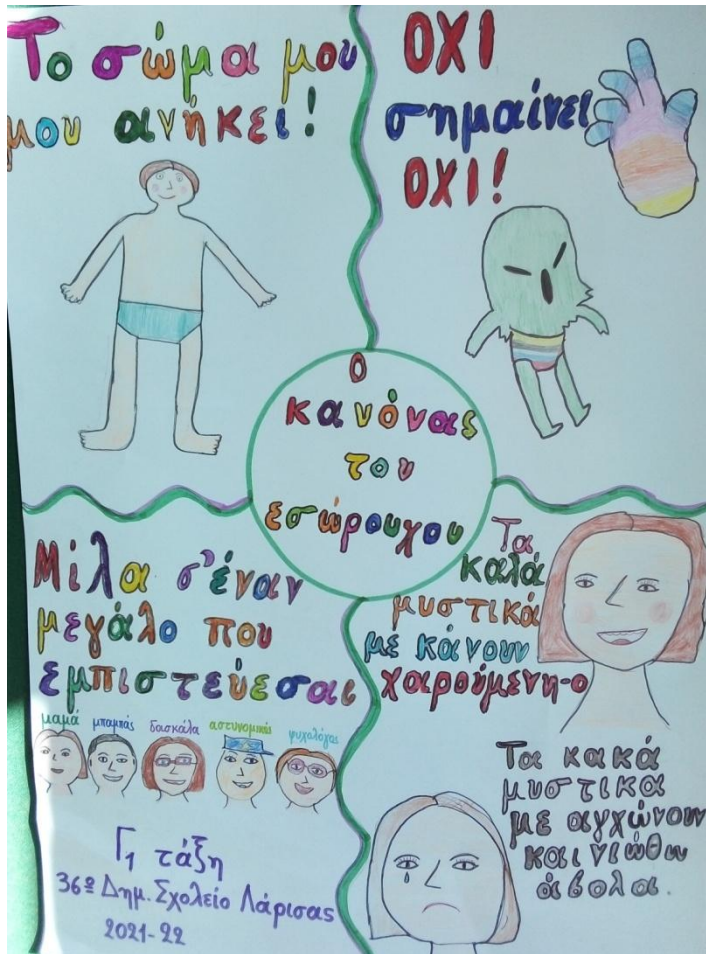 Το σώμα μου
μου ανήκει!
ΟΧΙ
σημαίνει
ΟΧΙ!
Ο
κανόνας
του
εσώρουχου
Μίλα σ'έναν
μεγάλο που
εμπιστεύεσαι
μαμά μπαμπάς δασκάλα αστυνομικός ψυχολόγος
Γ1 τάξη
36º Δημ. Σχολείο Λάρισας
2021-22
Τα
καλά
μυστικά
με κάνουν
χαρούμενη-ο
Τα κακά
μυστικα
με αγχώνουν
και νιώθω
άβολα.